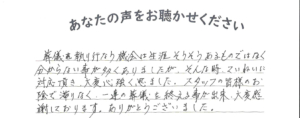 あなたの声をお聴かせください
葬儀を執り行なう機会は生涯そうそうあるものではなく
分からない事が多くありましたが、そんな時、ていねいに
対応頂き、大変心強く思えました。スタッフの皆様のお
陰で滞りなく、一連の葬儀を終える事が出来、大変感
謝しております。ありがとうございました。